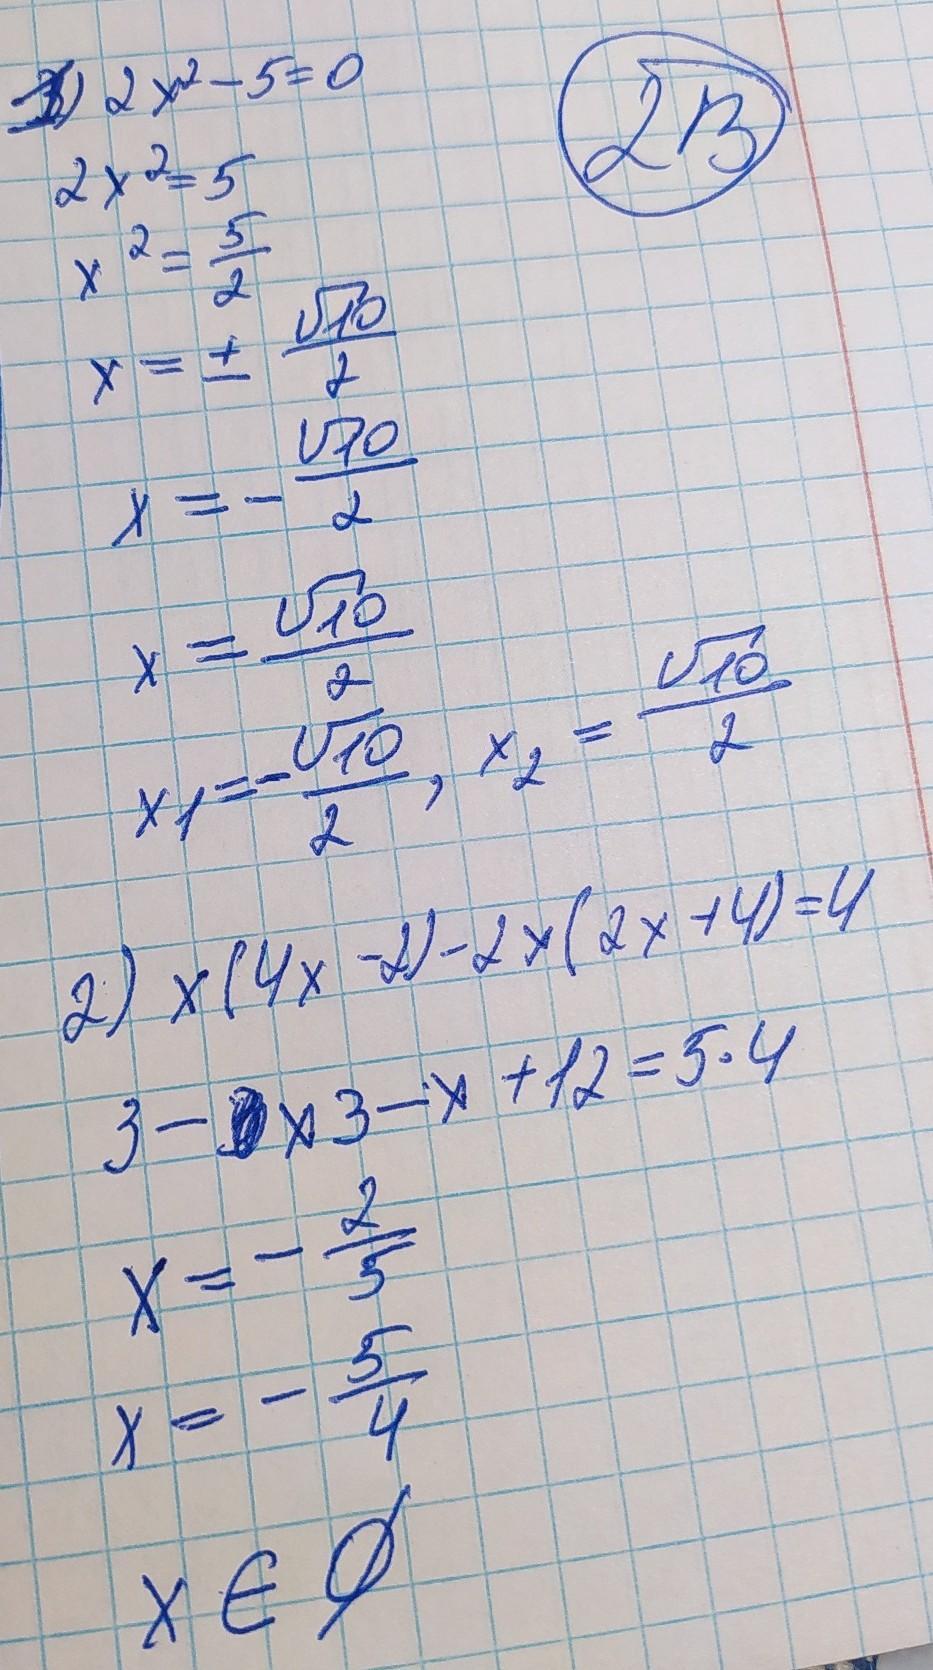 1) 2x² - 5 = 0
2В
2x² = 5
x² = 5/2
x = ± √10/2
x = - √10/2
x = √10/2
x₁ = - √10/2, x₂ = √10/2
2) x(4x - 2) - 2x(2x + 4) = 4
3 - x3 - x + 12 = 5·4
x = - 2/5
x = - 5/4
x ∈ ∅